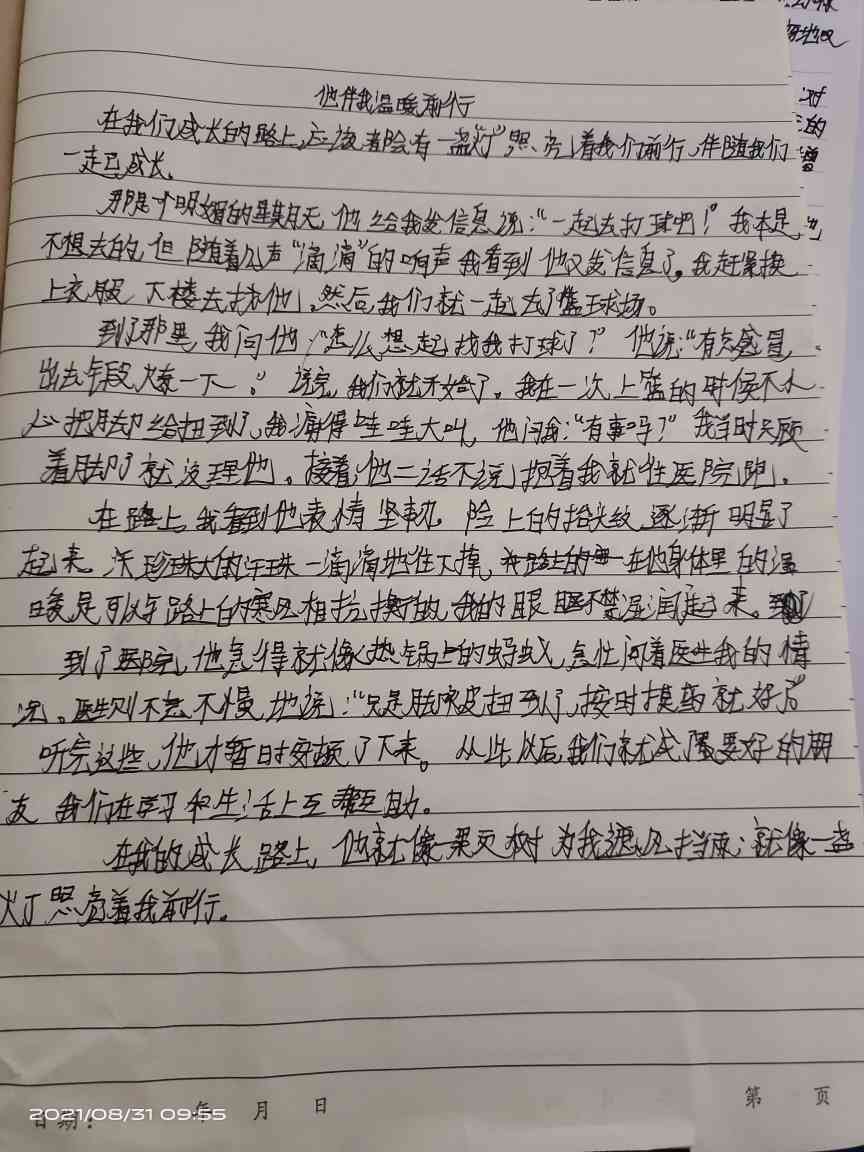 他伴我温暖前行
在我们成长的路上,应该都会有一盏“灯”照亮着我们前行,伴随我们
一走已成长。
那是个明媚的星期天,他给我发信息说:“一起去打球吧!”我本是
不想去的,但随着几声“滴滴”的响声我看到他又发信息了。我赶紧换
上衣服下楼去找他,然后,我们就一起去了篮球场。
到了那里,我问他:“怎么想起找我打球了?”他说:“有点感冒,
出去锻炼一下。”说完,我们就开始了。我在一次上篮的时候不小
心把脚给扭到了,我痛得哇哇大叫,他问我:“有事吗?”我当时只顾
着脚了就没理他。接着,他二话不说,抱着我就往医院跑。
在路上,我看到他表情坚韧,脸上的抬头纹逐渐明显了
起来。珍珠大的汗珠一滴滴地往下掉,在他身体里的温
暖是可以与路上的寒风相抗衡的,我的眼眶不禁湿润起来。
到了医院,他急得就像热锅上的蚂蚁,急忙问着医生我的情
况。医生则不急不慢地说:“只是脚皮扭到了,按时摸药就好了”
听完这些,他才暂时安顿了下来。从此以后,我们就成了要好的朋
友,我们在学习和生活上互助。
在我的成长路上,他就像一果页树为我遮风挡雨;就像一盏
灯照亮着我前行。
对
的
日期: 年 月 日
第 页
2021/08/31 09:55